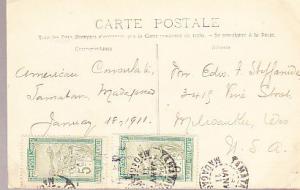 CARTE POSTALE
Tous les Pays Étrangers n'acceptent pas la Correspondance au recto. — Se renseigner à la Poste.
Correspondance
Adresse
American Consulate,
Tamatave Madagascar
January 18, 1911.
Mr. Edw. F.
3415 Vine Street
Milwaukee, Wis
U.S.A.
5